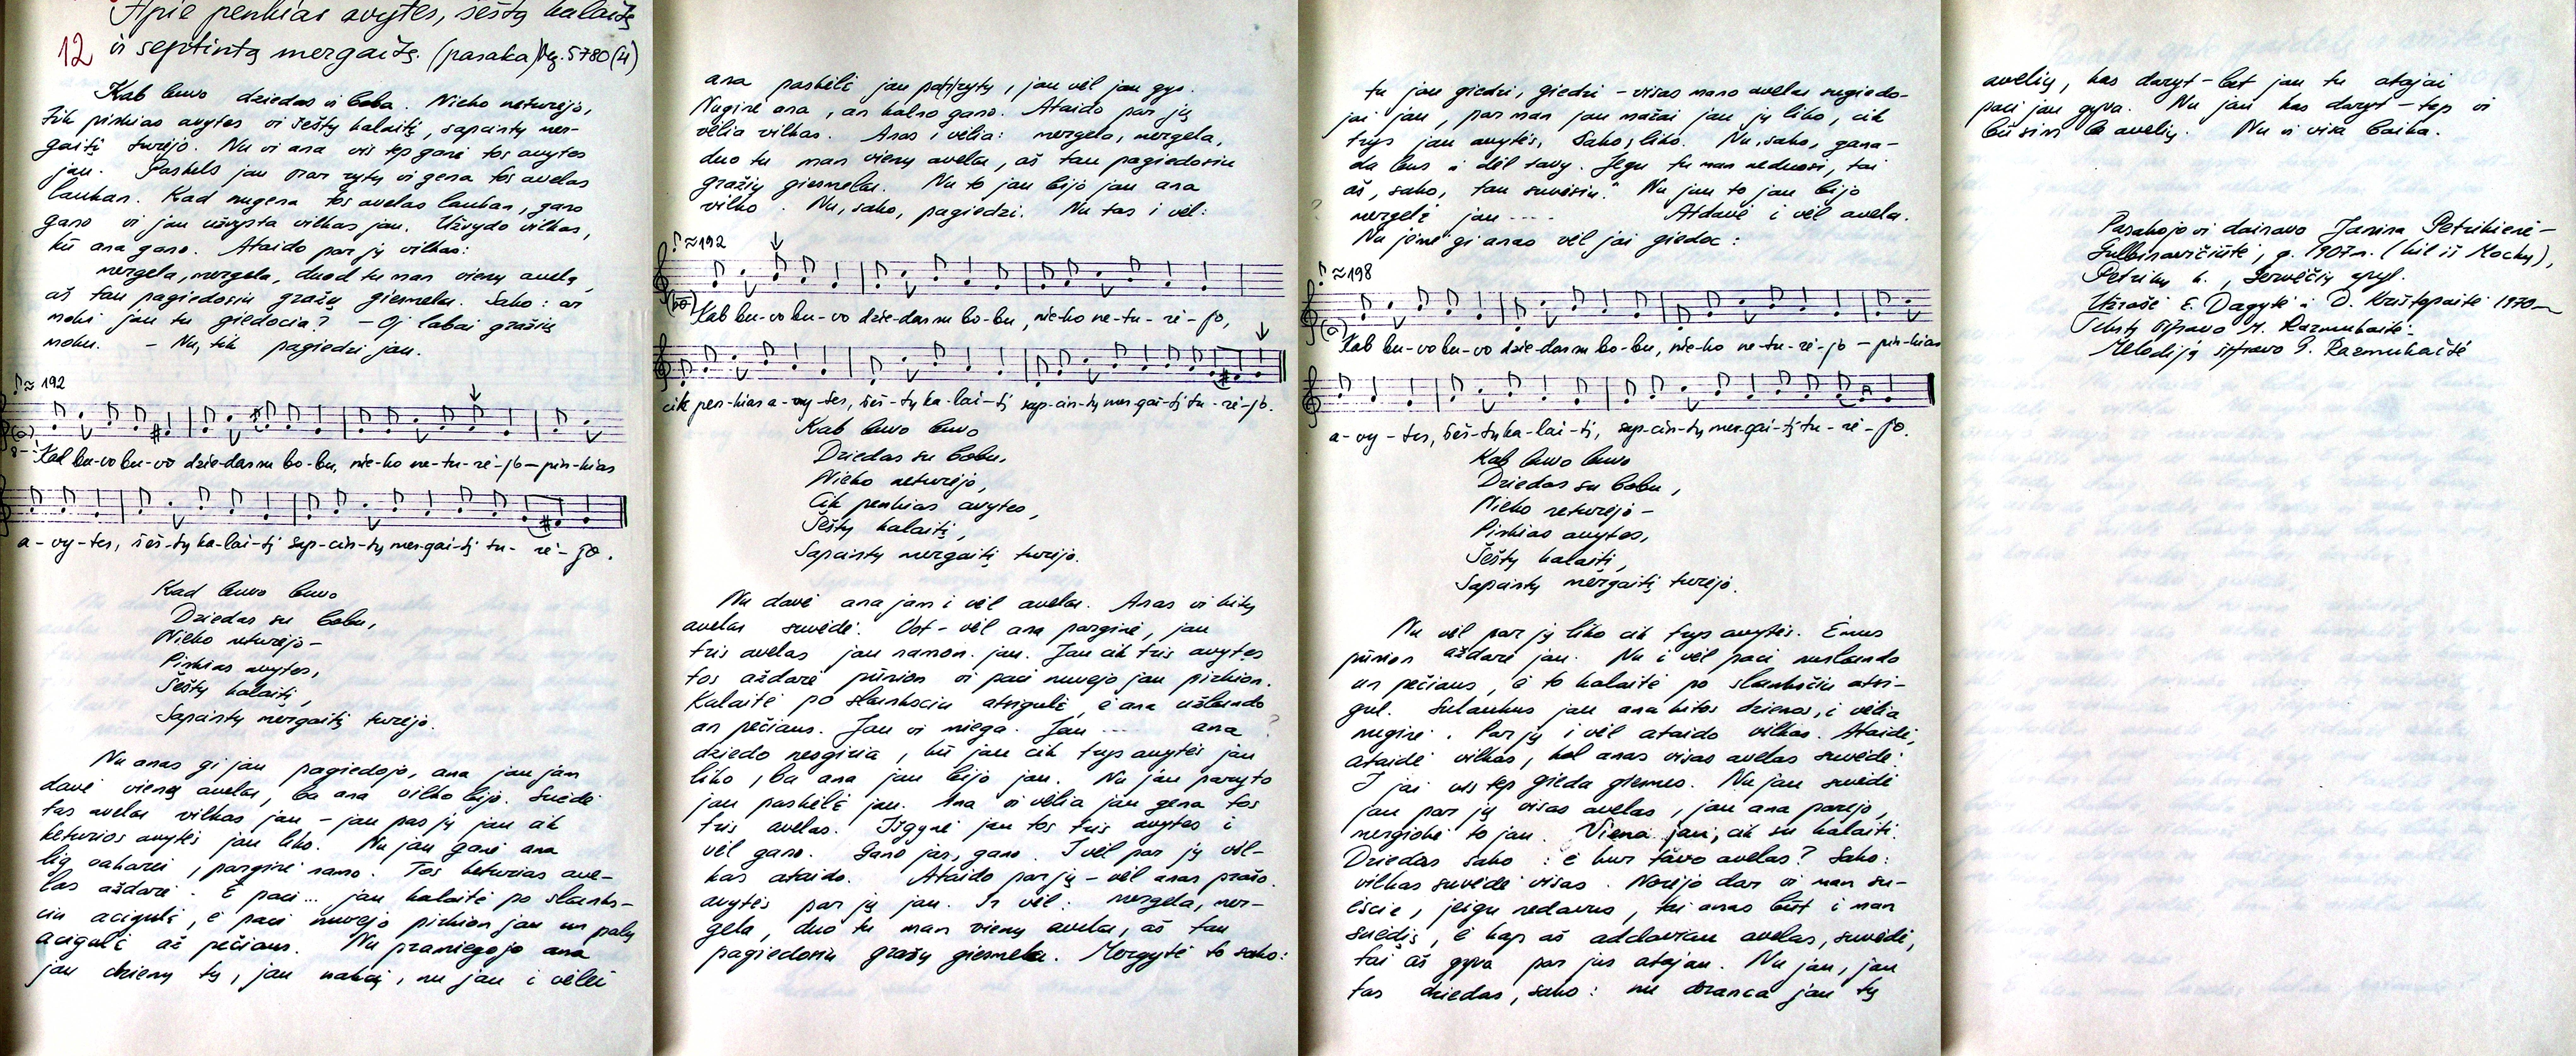 Apie penkias avytes, šeštą kalaitę
12 ir septintą mergaitę. (pasaka) Vg. 5780(4)
Kab buvo dziedas ir boba. Nieko neturėjo,
tik pinkias avytes ir šeštų kalaitį, sapcintų mer-
gaitį turėjo. Nu vi ana vis tep ganė tos avytes
jau. Paskels jau par rytų vi gena tos avelas
laukan. Kad nugena tos avelas laukan, gano
gano vi jau užvysta vilkas jau. Užvydo vilkas,
kū ana gano. Ataido par jų vilkas:
mergela, mergela, duod tu man vienų avelų,
aš tau pagiedosiu gražų giesmelu. Sako: ar
moki jau tu giedocia? – Oj labai gražių
moku. – Nu, tik pagiedzi jau.
♪≈192
Kad bu-vo bu-vo dzie-das su bo-bu, nie-ko ne-tu-rė-jo – pin-kias
a-vy-tes, šeš-tų ka-lai-tį sap-cin-tų mer-gai-tį tu-rė-jo.
Kad buvo buvo
Dziedas su bobu,
Nieko neturėjo –
Pinkias avytes,
Šeštų kalaitį,
Sapcintų mergaitį turėjo.
Nu anas gi jau pagiedojo, ana jau jam
davė vienų avelu, ba ana vilko bijo. Suėdė
tas avelu vilkas jau – jau pas jų jau cik
keturios avytės jau liko. Nu jau ganė ana
lig vakarei, parginė namo. Tos keturias ave-
las aždarė. E paci... jau kalaitė po slanks-
ciu acigulė, e paci nuvėjo pirkion jau un palų
acigulė až pečiaus. Nu pramiegojo ana
jau dzienų tų, jau nakcį, nu jau i vėlei
ana paskėlė jau pa(r)rytų, jau vėl jau gys.
Nuginė ana, an kalno gano. Ataido par jų
vėlia vilkas. Anas i vėlia: mergela, mergela,
duo tu man vienų avelu, aš tau pagiedosiu
gražių giesmelu. Nu to jau bijo jau ana
vilko. Nu, sako, pagiedzi. Nu tas i vėl:
♪≈192
Kab bu-vo bu-vo dzie-das su bo-bu, nie-ko ne-tu-rė-jo,
cik pen-kias a-vy-tes, šeš-tų ka-lai-tį sap-cin-tų mer-gai-tį tu-rė-jo.
Kab buvo buvo
Dziedas su bobu,
Nieko neturėjo,
Cik penkias avytes,
Šeštų kalaitį,
Sapcintų mergaitį turėjo.
Nu davė ana jam i vėl avelu. Anas vi kitų
avelu suvėdė. Vot – vėl ana parginė, jau
tris avelas jau namon jau. Jau cik tris avytes
tos aždarė pūnion vi paci nuvejo jau pirkion.
Kalaitė po slanksciu atsigulė, e ana užlindo
an pečiaus. Jau vi miega. Jau ... ana ?
dziedo nesgiria, kū jau cik trys avytės jau
liko, ba ana jau bijo jau. Nu jau paryto
jau paskėlė jau. Ana vi vėlia jau gena tos
tris avelas. Išgynė jau tos tris avytes i
vėl gano. Gano jas, gano. I vėl par jų vil-
kas ataido. Ataido par jų – vėl anas prašo
avytės par jų jau. Ir vėl: mergela, mer-
gela, duo tu man vienų avelu, aš tau
pagiedosiu gražų giesmelu. Mergytė to sako:
tu jau giedzi, giedzi – visas mano avelas sugiedo-
jai jau, par man jau mažai jau jų liko, cik
trys jau avytės, sako, liko. Nu, sako, gana-
da bus i dėl tavy. Jegu tu man neduosi, tai
aš, sako, tau suvėsiu." Nu jau to jau bijo
? mergelė jau .... Atdavė i vėl avelu.
Nu jėmė gi anas vėl jai giedoc:
♪≈198
Kab bu-vo bu-vo dzie-das su bo-bu, nie-ko ne-tu-rė-jo – pin-kias
a-vy-tes, šeš-tų ka-lai-tį, sap-cin-tų mer-gai-tį tu-rė-jo.
Kab buvo buvo
Dziedas su bobu,
Nieko neturėjo –
Pinkias avytes,
Šeštų kalaitį,
Sapcintų mergaitį turėjo.
Nu vėl par jų liko cik trys avytės. Ėmus
pūnion aždarė jau. Nu i vėl paci nuslindo
un pečiaus, e to kalaitė po slankščiu atsi-
gul. Sulaukus jau ana kitos dzienos, i vėlia
nuginė. Par jų i vėl ataido vilkas. Ataidė,
ataidė vilkas, kol anas visas avelas suvėdė.
I jai vis tep gieda giesmes. Nu jau suvėdė
jau par jų visas avelas, jau ana parėjo,
mergiokė to jau. Viena jau, cik su kalaiti.
Dziedas sako: e kur tavo avelas? Sako:
vilkas suvėdė visas. Norėjo dar vi man su-
ėscie, jeigu nedavus, tai anas būt i man
suėdis, e kap aš addaviau avelas, suvėdė,
tai aš gyva par jus atajau. Nu jau, jau
tas dziedas, sako: nu dranca jau tų
avelių, kas daryt – bat jau tu atajai
paci jau gyva. Nu jau kas daryt – tep vi
būsim be avelių. Nu ir visa baika.
Pasakojo vi dainavo Janina Petrikienė –
Gulbinavičiūtė, g. 1907 m. (kil. iš Mockų),
Petrikų k., Gervėčių apyl.
Užrašė E. Dagytė ir D. Krištopaitė 1970 m
Tekstą šifravo M. Razmukaitė.
Melodiją šifravo G. Razmukaitė